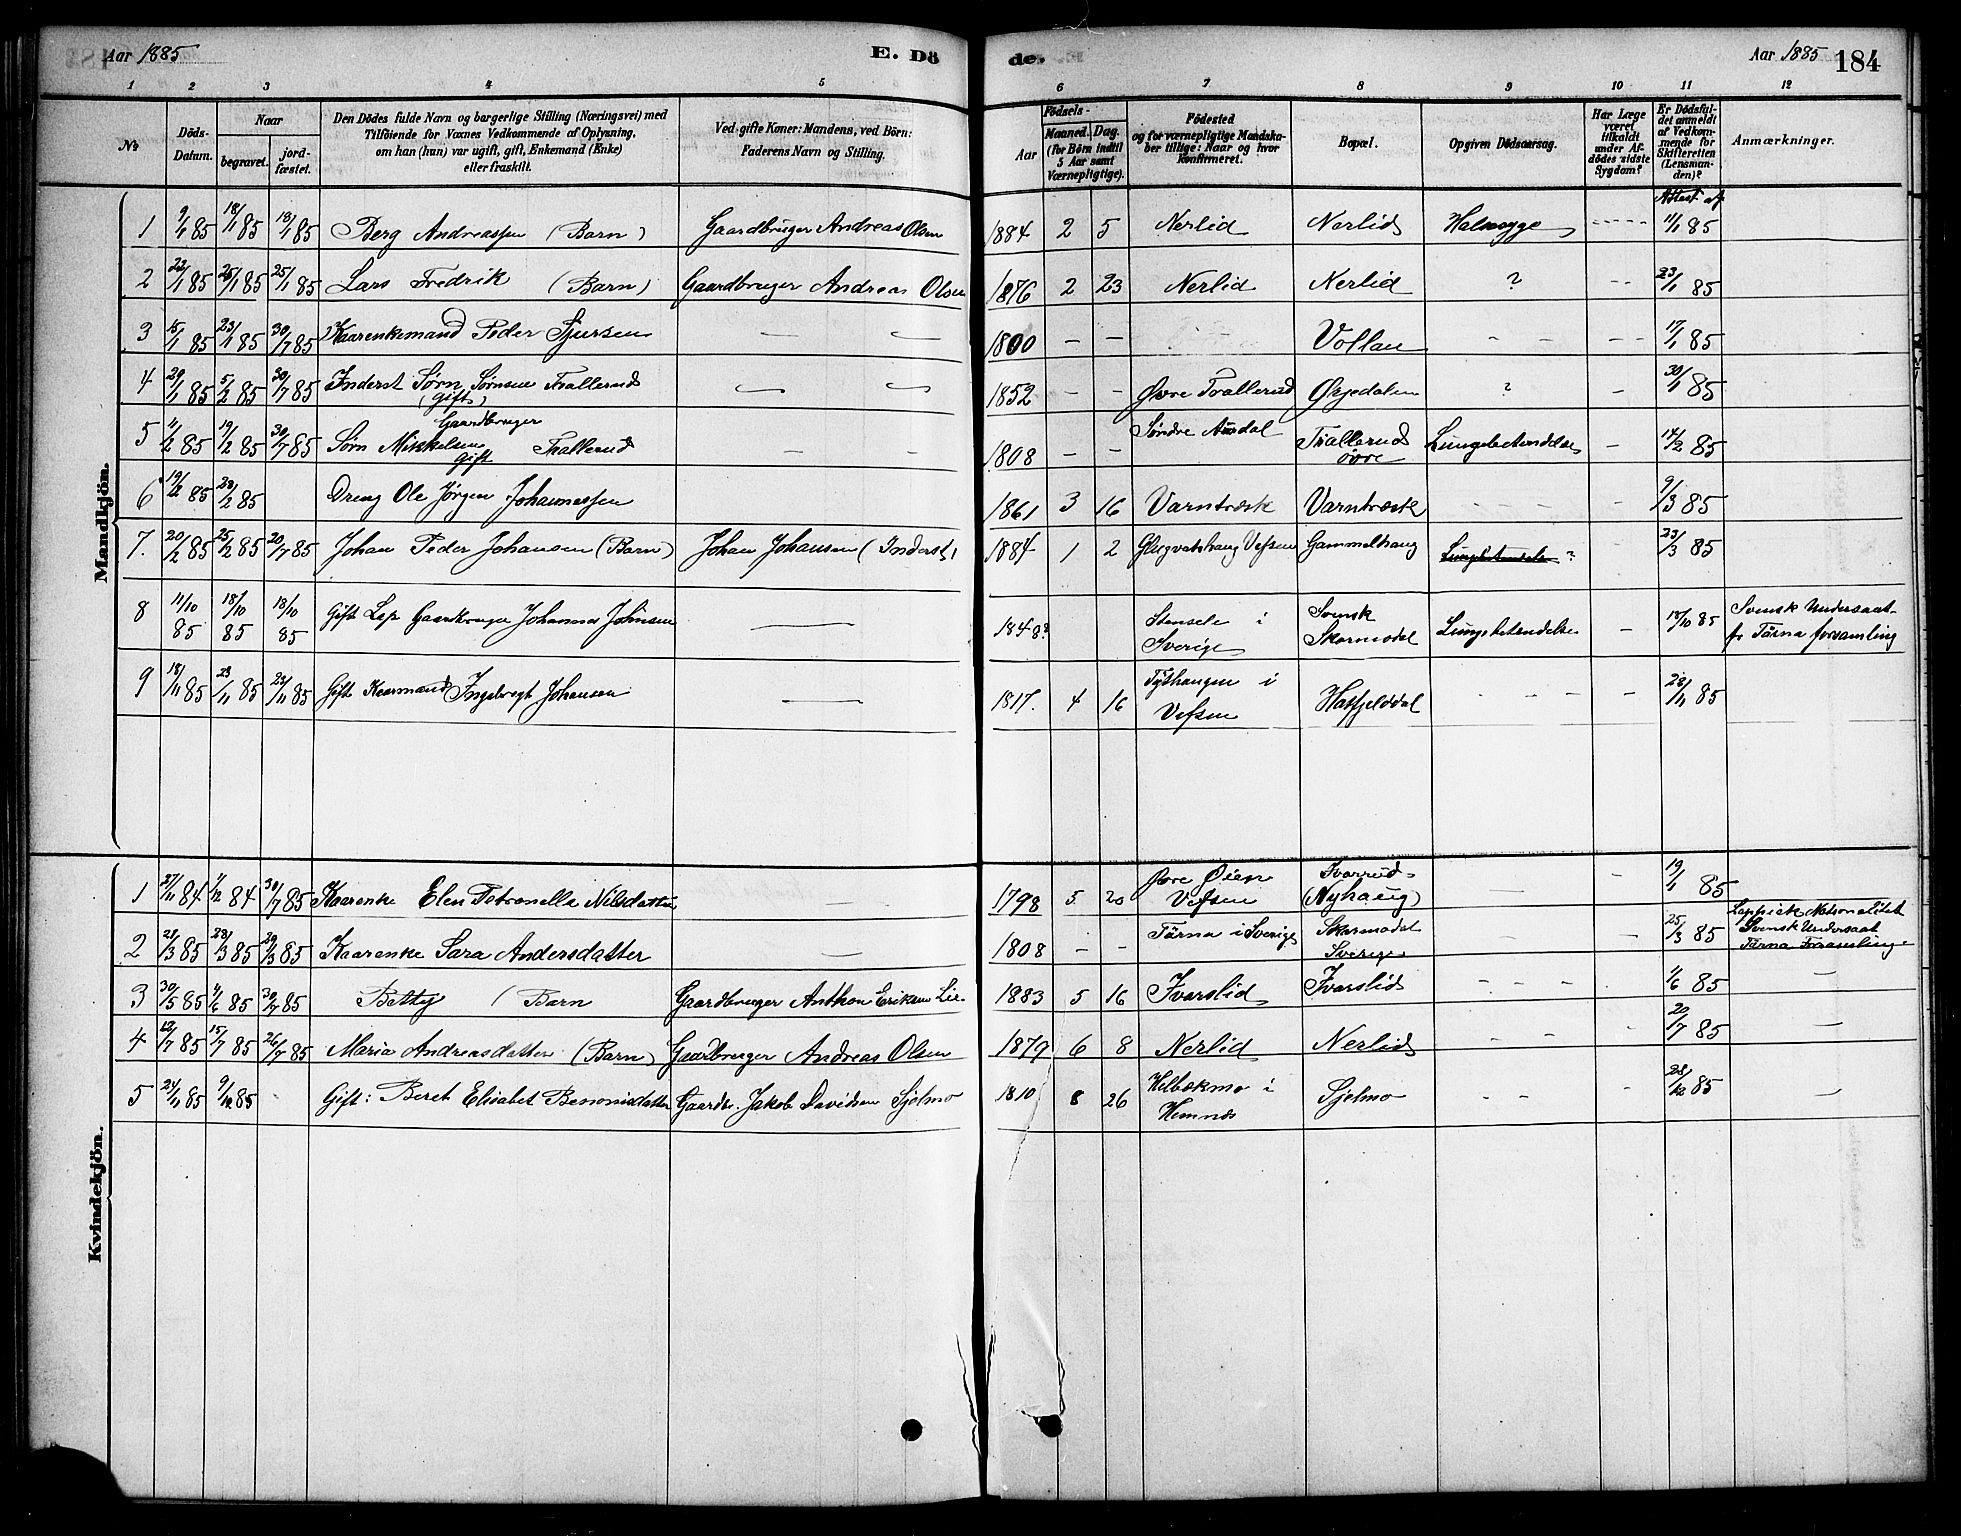 Aar 1885 E. Dö de. Aar 1885 184
1 2 3 4 5 6 7 8 9 10 11 12
№ Döds-Datum. Naar begravet. jordfæstet. Den Dödes fulde Navn og borgerlige Stilling (Næringsvei) med Tilföiende for Voxnes Vedkommende af Oplysning, om han (hun) var ugift, gift, Enkemand (Enke) eller fraskilt. Ved gifte Koner: Mandens, ved Börn: Faderens Navn og Stilling. Födsels- Aar Maaned. Dag. (for Börn indtil 5 Aar samt Værnepligtige). Födested og for værnepligtige Mandskaber tillige: Naar og hvor Konfirmeret. Bopæl. Opgiven Dödsaarsag. Har Læge været tilkaldt under Afdödes sidste Sygdom? Er Dödsfaldet anmeldt af Vedkommende for Skifteretten (Lensmanden)? Anmærkninger.
Mandkjön.
1 9/1 85 18/1 85 18/1 85 Berg Andreassen (Barn) Gaardbruger Andreas Olsen 1884 2 5 Nerlid Nerlid Halssyge Attest af 11/1 85
2 22/1 85 25/1 85 25/1 85 Lars Fredrik (Barn) Gaardbruger Andreas Olsen 1876 2 23 Nerlid Nerlid ? 23/1 85
3 15/1 85 23/1 85 30/7 85 Kaarenkemand Peder Sjursen — — 1800 — — Vollan - - — 17/1 85
4 29/1 85 5/2 85 30/7 85 Inderst Sørn Sørnsen Trallerud (gift) — — 1852 — — Øvre Trallerud Ørjedalen ? — 30/1 85
5 11/2 85 19/2 85 30/7 85 Sørn Mikkelsen Gaardbruger gift Trallerud — — 1808 — — Søndre Ausdal Trallerud övre Lungebetændelse — 14/2 85
6 19/2 85 23/2 85 Dreng Ole Jørgen Johannessen 1861 3 16 Varntræsk Varntræsk - - - — 9/3 85
7. 20/2 85 25/2 85 20/7 85 Johan Peder Johansen (Barn) Johan Johansen (Inderst) 1884 1 2 Vefsen Gammelhaug Lungebetændelse ? 23/3 85
8 11/10 85 18/10 85 18/10 85 Gift Lap Gaardbruger Johannes Johnsen — 1848? Stensele i Sverige Svensk Skarmodal Lungebetændelse — 18/10 85 Svensk Undersaat fr Tärna forsamling
9 18/11 85 23/11 85 23/11 85 Gift Kaarmand Ingebregt Johansen — 1817. 4 16 Tythaugen i Vefsen Hatfjelddal - - — 28/11 85
Kvindekjön.
1 27/11 84 1/12 84 30/7 85 Kaarenke Elen Petronella Nilsdatter — 1798 5 20 Øvre Øien Vefsen Ivarrud (Nyhaug) — — 19/1 85
2 21/3 85 23/3 85 29/3 85 Kaarenke Sara Andersdatter — 1808 — — Tärna i Sverige Skarmodal Sverige 25/3 85 Lappisk Nationalitet Svensk Undersaat Tärna Forsamling
3 30/5 85 4/6 85 30/7 85 Betty (Barn Gaardbruger Anthon Eriksen Lie 1883 5 16 Ivarslid Ivarslid - - - — 1/6 85 —
4 12/7 85 15/7 85 26/7 85 Maria Andreasdatter (Barn) Gaardbruger Andreas Olsen 1879 6 8 Nerlid Nerlid - - — 20/7 85 —
5 24/11 85 9/12 85 - Gift: Beret Elisabet Benonisdatter Gaardb. Jakob Davidsen Sjelmo 1810 8 26 Helbækmo i Hemnæs Sjelmo - - - 28/12 85 —